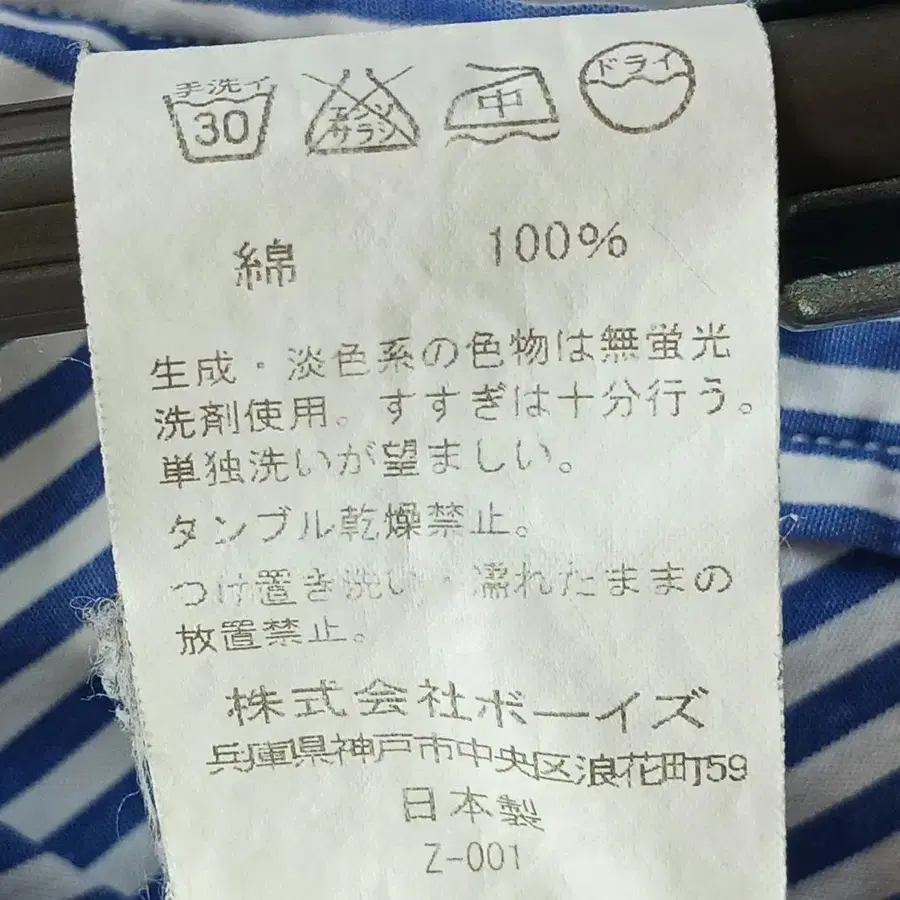 手洗イ
30
エンソ
サラシ
中
ドライ
綿 100%
生成・淡色系の色物は無蛍光
洗剤使用。すすぎは十分行う。
単独洗いが望ましい。
タンブル乾燥禁止。
つけ置き洗い・濡れたままの
放置禁止。
株式会社ボーイズ
兵庫県神戸市中央区浪花町59
日本製
Z-001